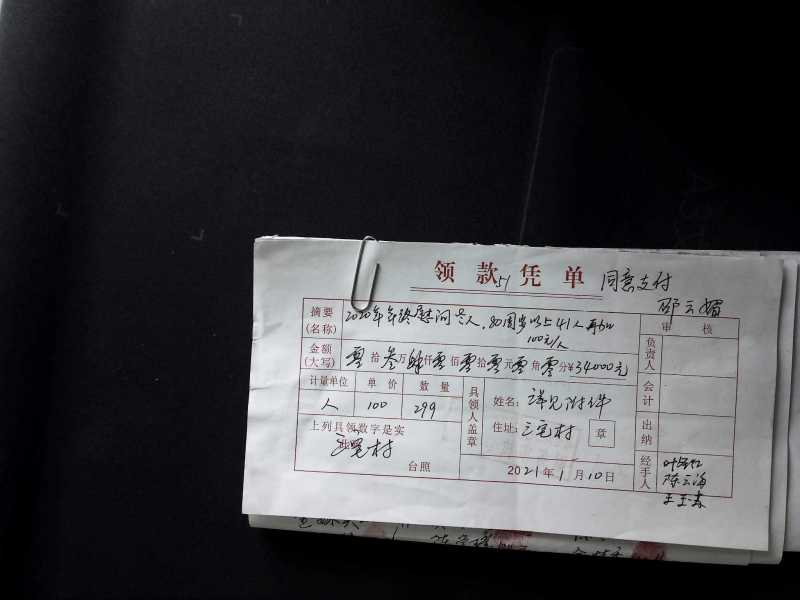 领款凭单
51
同意支付
邵云媚
摘要(名称) 2020年年终慰问老人,80周岁以上41人再加
100元/人
审核
金额(大写) 零拾叁万肆仟零佰零拾零元零角零分¥34000元
负责人
计量单位 单价 数量
人 100 299
具领人盖章
姓名:详见附件
会计
上列具领数字是实
住址:三宅村 章
出纳
此照
三宅村
台照
2021年1月10日
经手人
陈云海